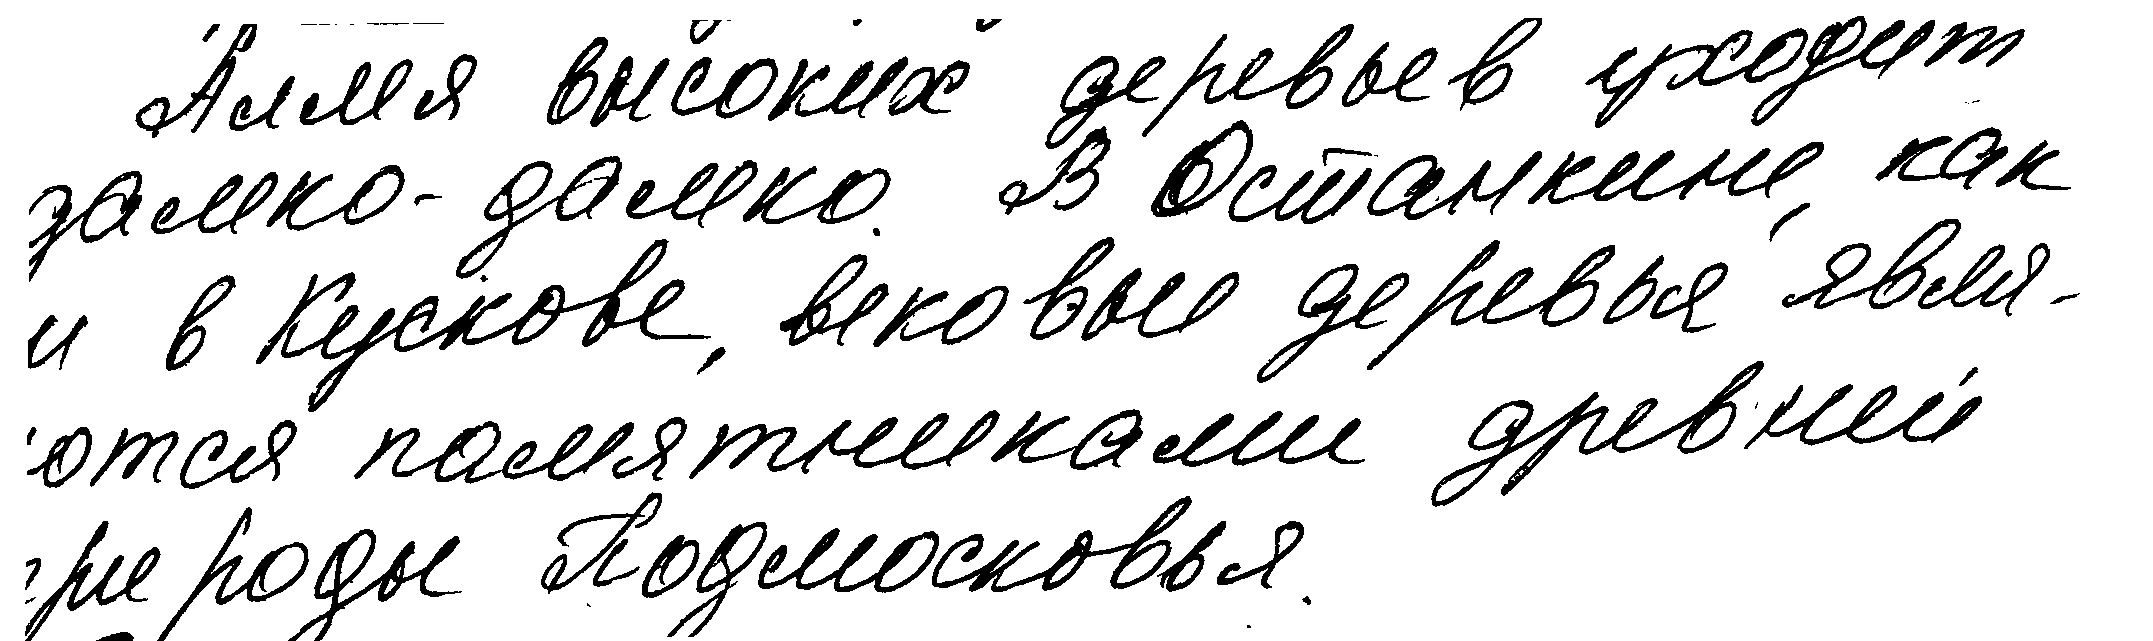 Аллея высоких деревьев уходит
далеко-далеко. В Останкине, как
и в Кускове, вековые деревья явля-
ются памятниками древней
природы Подмосковья.